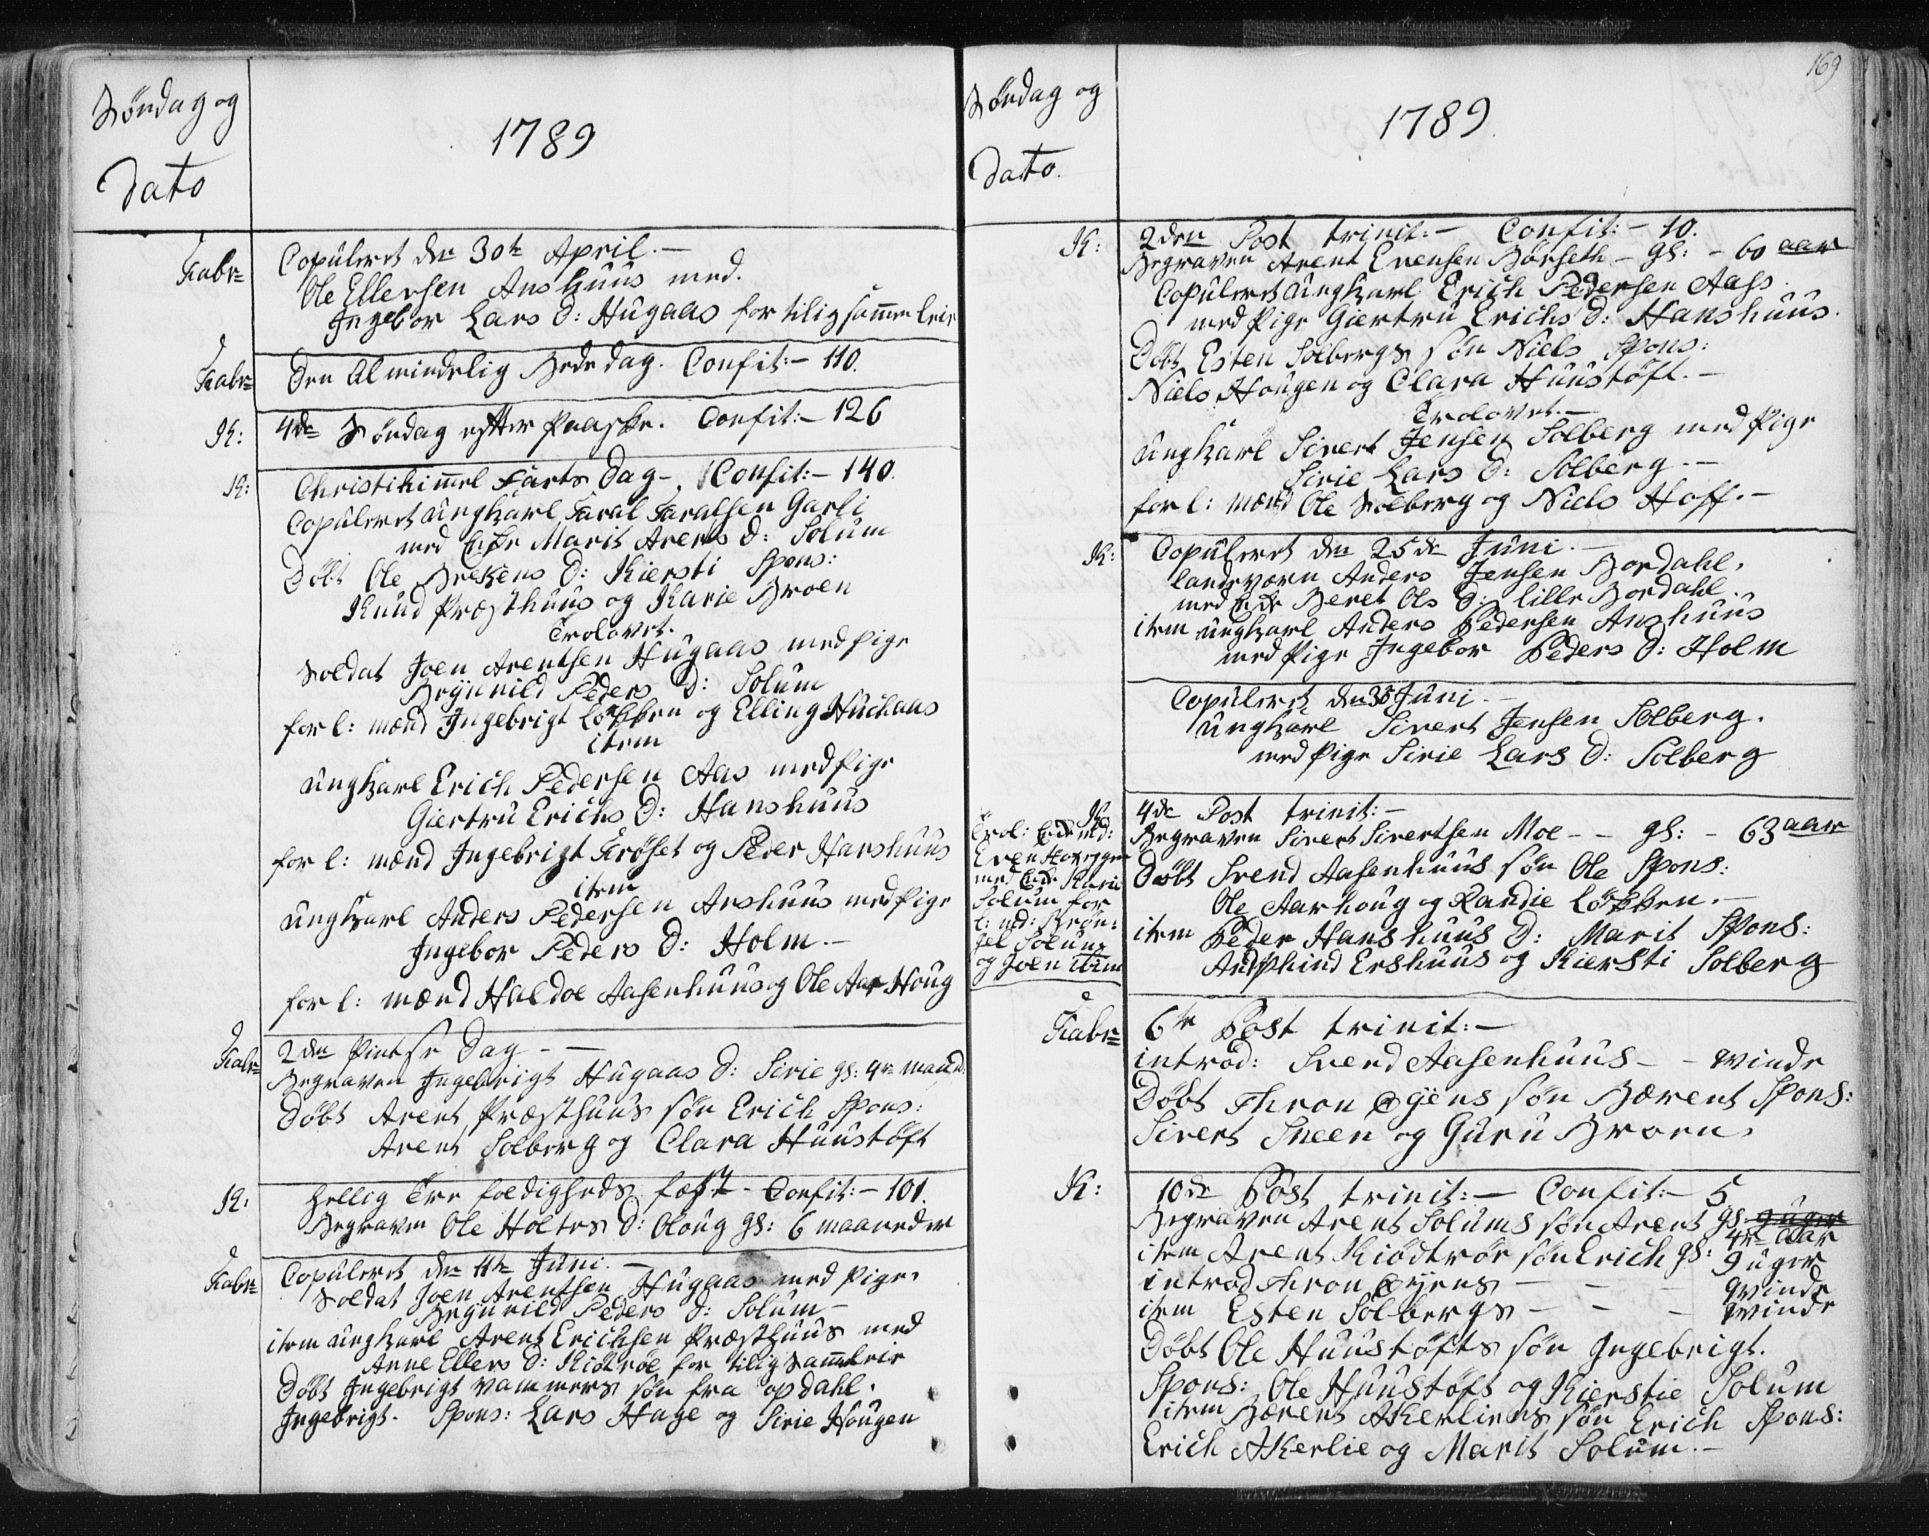 Søndag og
Dato
1789
Kabr=
Copuleret den 30te April.—
Ole Ellensen Anshuus med.
Ingebor Lars D: Hugaas for tilig sammenleie
Kabr=
Den Almindelig Bededag. Confit:— 110.
K:
4de Søndag efter Paaske. Confit:— 126
K:
Christi himmel Farts Dag—. Confit:— 140.
Copuleret ungkarl Taral Taralsen Garli
med Enke Marit Arens D: Solum
Døbt Ole Brekens D: Kiersti Spons:
Knud Præsthuus og Karie Broen
Trolovet.
Soldat Joen Arentsen Hugaas med pige
Brynnild Peders D: Solum
forl: mænd Ingebrigt Løkken og Elling Huchaas
item
ungkarl Erich Pedersen Aas med Pige
Giertru Erichs D: Hanshuus
forl: mænd Ingebrigt Trøset og Peder Hanshuus
item
ungkarl Anders Pedersen Anshuus med Pige
Ingebor Peders D: Holm.—
forl: mænd Haldoe Aasenhuus og Ole Aar Houg
Kabr=
2den Pintse Dag — —
Begraven Ingebrigt Hugaas D: Sirie gs: 4re maan:
Døbt Arent Præsthuus søn Erich Spons:
Arent Solberg og Clara Huustøft
K:
Hellig Tre foldigheds fæst— Confit:— 101.
Begraven Ole Holtes D: Oloug gs: 6 maaneder
Kabr=
Copuleret den 11te Juni.—
Soldat Joen Arentsen Hugaas med Pige.
Brynnild Peders D: Solum—
item ungkarl Arent Erichsen Præsthuus med
Anne Ellens D: Kiøtrøe for tilig Sammleie
Døbt Ingebrigt Vammers søn fra opdahl.
Ingebrigt. Spons: Lars Hage og Sirie Hougen
Søndag og
Dato.
1789.
169
K:
2den Post trinit:— Confit:— 10.
Begraven Arent Evensen Børseth— gs:— 60 aar
Copuleret ungkarl Erich Pedersen Aass.
med Pige Giertru Erichs D: Hanshuus.
Døbt Esten Solbergs søn Niels Spons:
Niels Hougen og Clara Huustøft.—
Trolovet.—
ungkarl Sivert Jensen Solberg med Pige
Sirie Lars D: Solberg.—
forl: mænd Ole Solberg og Niels Hoff.—
K:
Copuleret den 25de Juni.—
landeværn Anders Jensen Bordahl.
med Enke Beret Ols D: lille Bordahl.
item ungkarl Anders Pedersen Anshuus
med Pige Ingebor Peders D: Holm
Copuleret den 30 Juni.—
ungkarl Sivert Jensen Solberg.
med Pige Sirie Lars D: Solberg
K:
Trol: Enk md:
Even Hovegger
med Enke Karie
Solum for
l: md: Brøn=
gel Solum
og Joen item
4de Post trinit:—
Begraven Sivert Sivertsen Moe — — gs: — 63 aar
Døbt Svend Aasenhuus søn Ole Spons:
Ole Aarhoug og Randie Løkken.—
item Peder Hanshuus D: Marit Spons:
Andsphind Ershuus og Kiersti Solberg
Kabr=
6te Post trinit:—
introd: Svend Aasenhuus— — qvinde
Døbt Thron Øyens søn Bærent Spons:
Sivert Sneen og Guru Broen.
K:
10de Post trinit:— Confit:— 5
Begraven Arent Solums søn Arent gs: 9 uger
4re Aar
item Arent Kiødtrør søn Erich gs: 9 uger
introd Thron Øyens — — — qvinde
item Esten Solbergs — — — qvinde
Døbt Ole Huustøfts søn Ingebrigt.
Spons: Ole Huustøft og Kierstie Solum
item Bærent Akerliens søn Erich Spons:
Erich Akerlie og Marit Solum.—